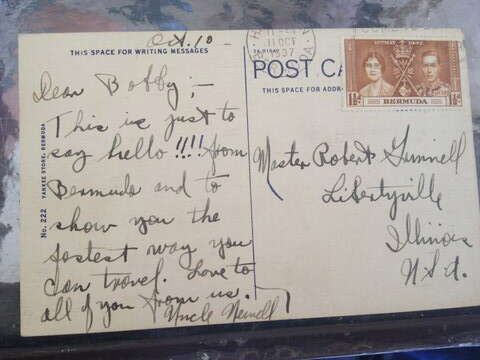 Oct. 10
THIS SPACE FOR WRITING MESSAGES
Dear Bobby; -
This is just to
say hello !!!! from
Bermuda and to
show you the
fastest way you
can travel. Love to
all of you from us.
Uncle
No. 222 YANKEE STORE, BERMUDA
11 OCT
37
POST CA
THIS SPACE FOR ADDR
12TH MAY 1937
1½D
BERMUDA
1½D
Master Robert
Libertyville
Illinois
U.S.A.